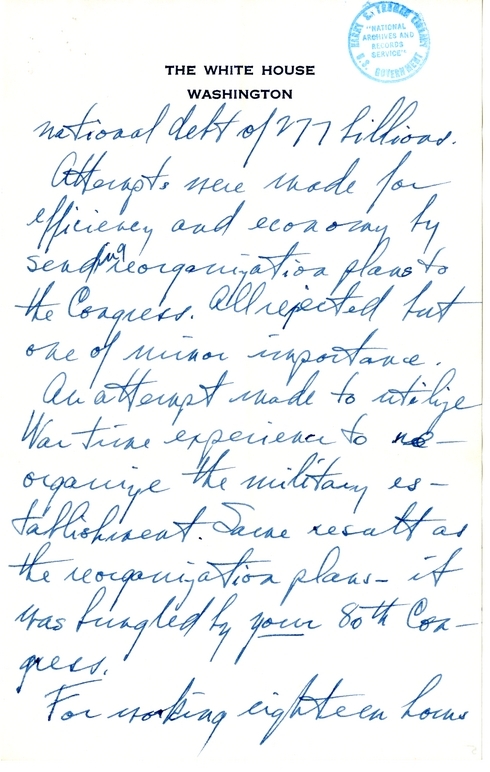 HARRY S. TRUMAN LIBRARY
"NATIONAL
ARCHIVES AND
RECORDS
SERVICE"
U.S. GOVERNMENT
THE WHITE HOUSE
WASHINGTON
national debt of 277 billions.
Attempts were made for
efficiency and economy by
sending reorganization plans to
the Congress. All rejected but
one of minor importance.
An attempt made to utilize
War time experience to re-
organize the military es-
tablishment. Same result as
the reorganization plans - it
was bungled by your 80th Con-
gress.
For working eighteen hours